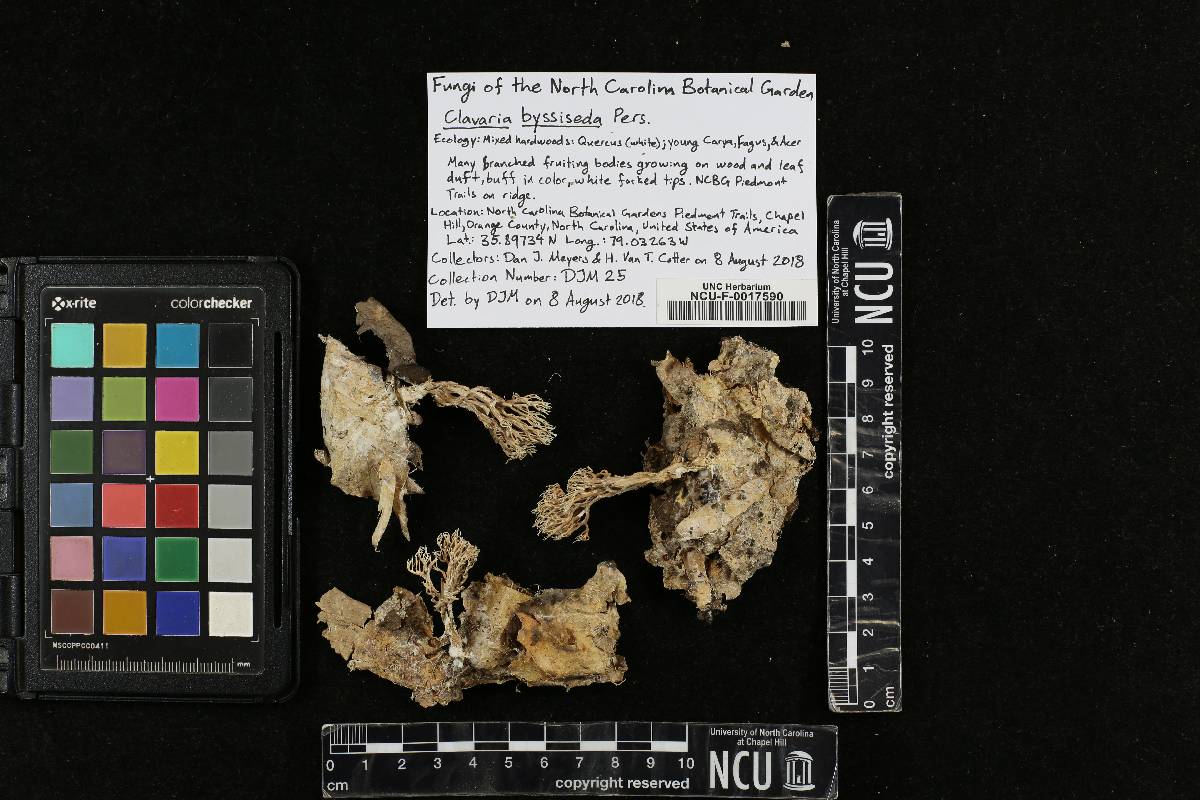 Fungi of the North Carolina Botanical Garden
Clavaria byssiseda Pers.
Ecology: Mixed hardwoods: Quercus (white); young Carya, Fagus, & Acer
Many branched fruiting bodies growing on wood and leaf
duft, buff in color, white forked tips. NCBG Piedmont
Trails on ridge.
Location: North Carolina Botanical Gardens Piedmont Trails, Chapel
Hill, Orange County, North Carolina, United States of America
Lat: 35.89734 N Long.: 79.03263 W
Collectors: Dan J. Meyers & H. Van T. Cotter on 8 August 2018
Collection Number: DJM 25
Det. by DJM on 8 August 2018
UNC Herbarium
NCU-F-0017590
x-rite
colorchecker
MSCCPPCC0411
mm
University of North Carolina
at Chapel Hill
NCU
copyright reserved
10
9
8
7
6
5
4
3
2
1
0
cm
0 1 2 3 4 5 6 7 8 9 10
cm
copyright reserved
University of North Carolina
at Chapel Hill
NCU